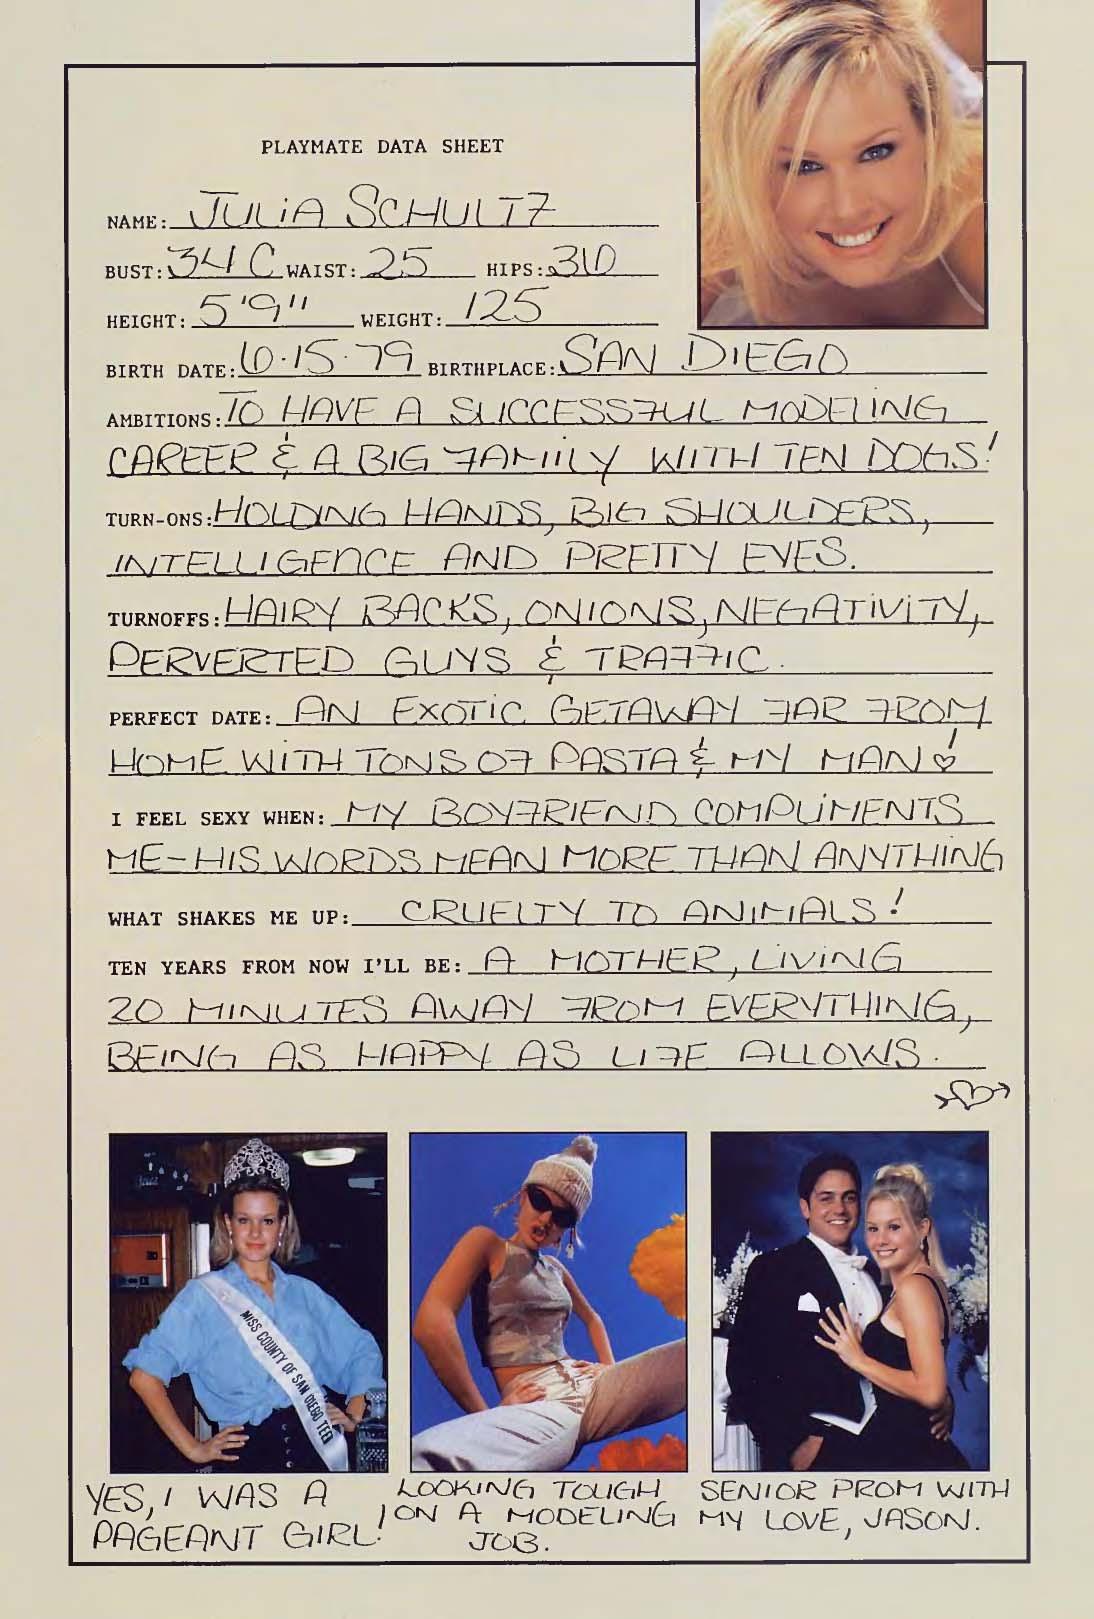 PLAYMATE DATA SHEET
NAME: JULIA SCHULTZ
BUST: 34C WAIST: 25 HIPS: 36
HEIGHT: 5'9" WEIGHT: 125
BIRTH DATE: 6·15·79 BIRTHPLACE: SAN DIEGO
AMBITIONS: TO HAVE A SUCCESSFUL MODELING
CAREER & A BIG FAMILY WITH TEN DOGS!
TURN-ONS: HOLDING HANDS, BIG SHOULDERS,
INTELLIGENCE AND PRETTY EYES.
TURNOFFS: HAIRY BACKS, ONIONS, NEGATIVITY,
PERVERTED GUYS & TRAFFIC.
PERFECT DATE: AN EXOTIC GETAWAY FAR FROM
HOME WITH TONS OF PASTA & MY MAN!
I FEEL SEXY WHEN: MY BOYFRIEND COMPLIMENTS
ME-HIS WORDS MEAN MORE THAN ANYTHING
WHAT SHAKES ME UP: CRUELTY TO ANIMALS!
TEN YEARS FROM NOW I'LL BE: A MOTHER, LIVING
20 MINUTES AWAY FROM EVERYTHING,
BEING AS HAPPY AS LIFE ALLOWS.
MISS COUNTY OF SAN DIEGO TEEN
YES, I WAS A
PAGEANT GIRL!
LOOKING TOUGH
ON A MODELING
JOB.
SENIOR PROM WITH
MY LOVE, JASON.